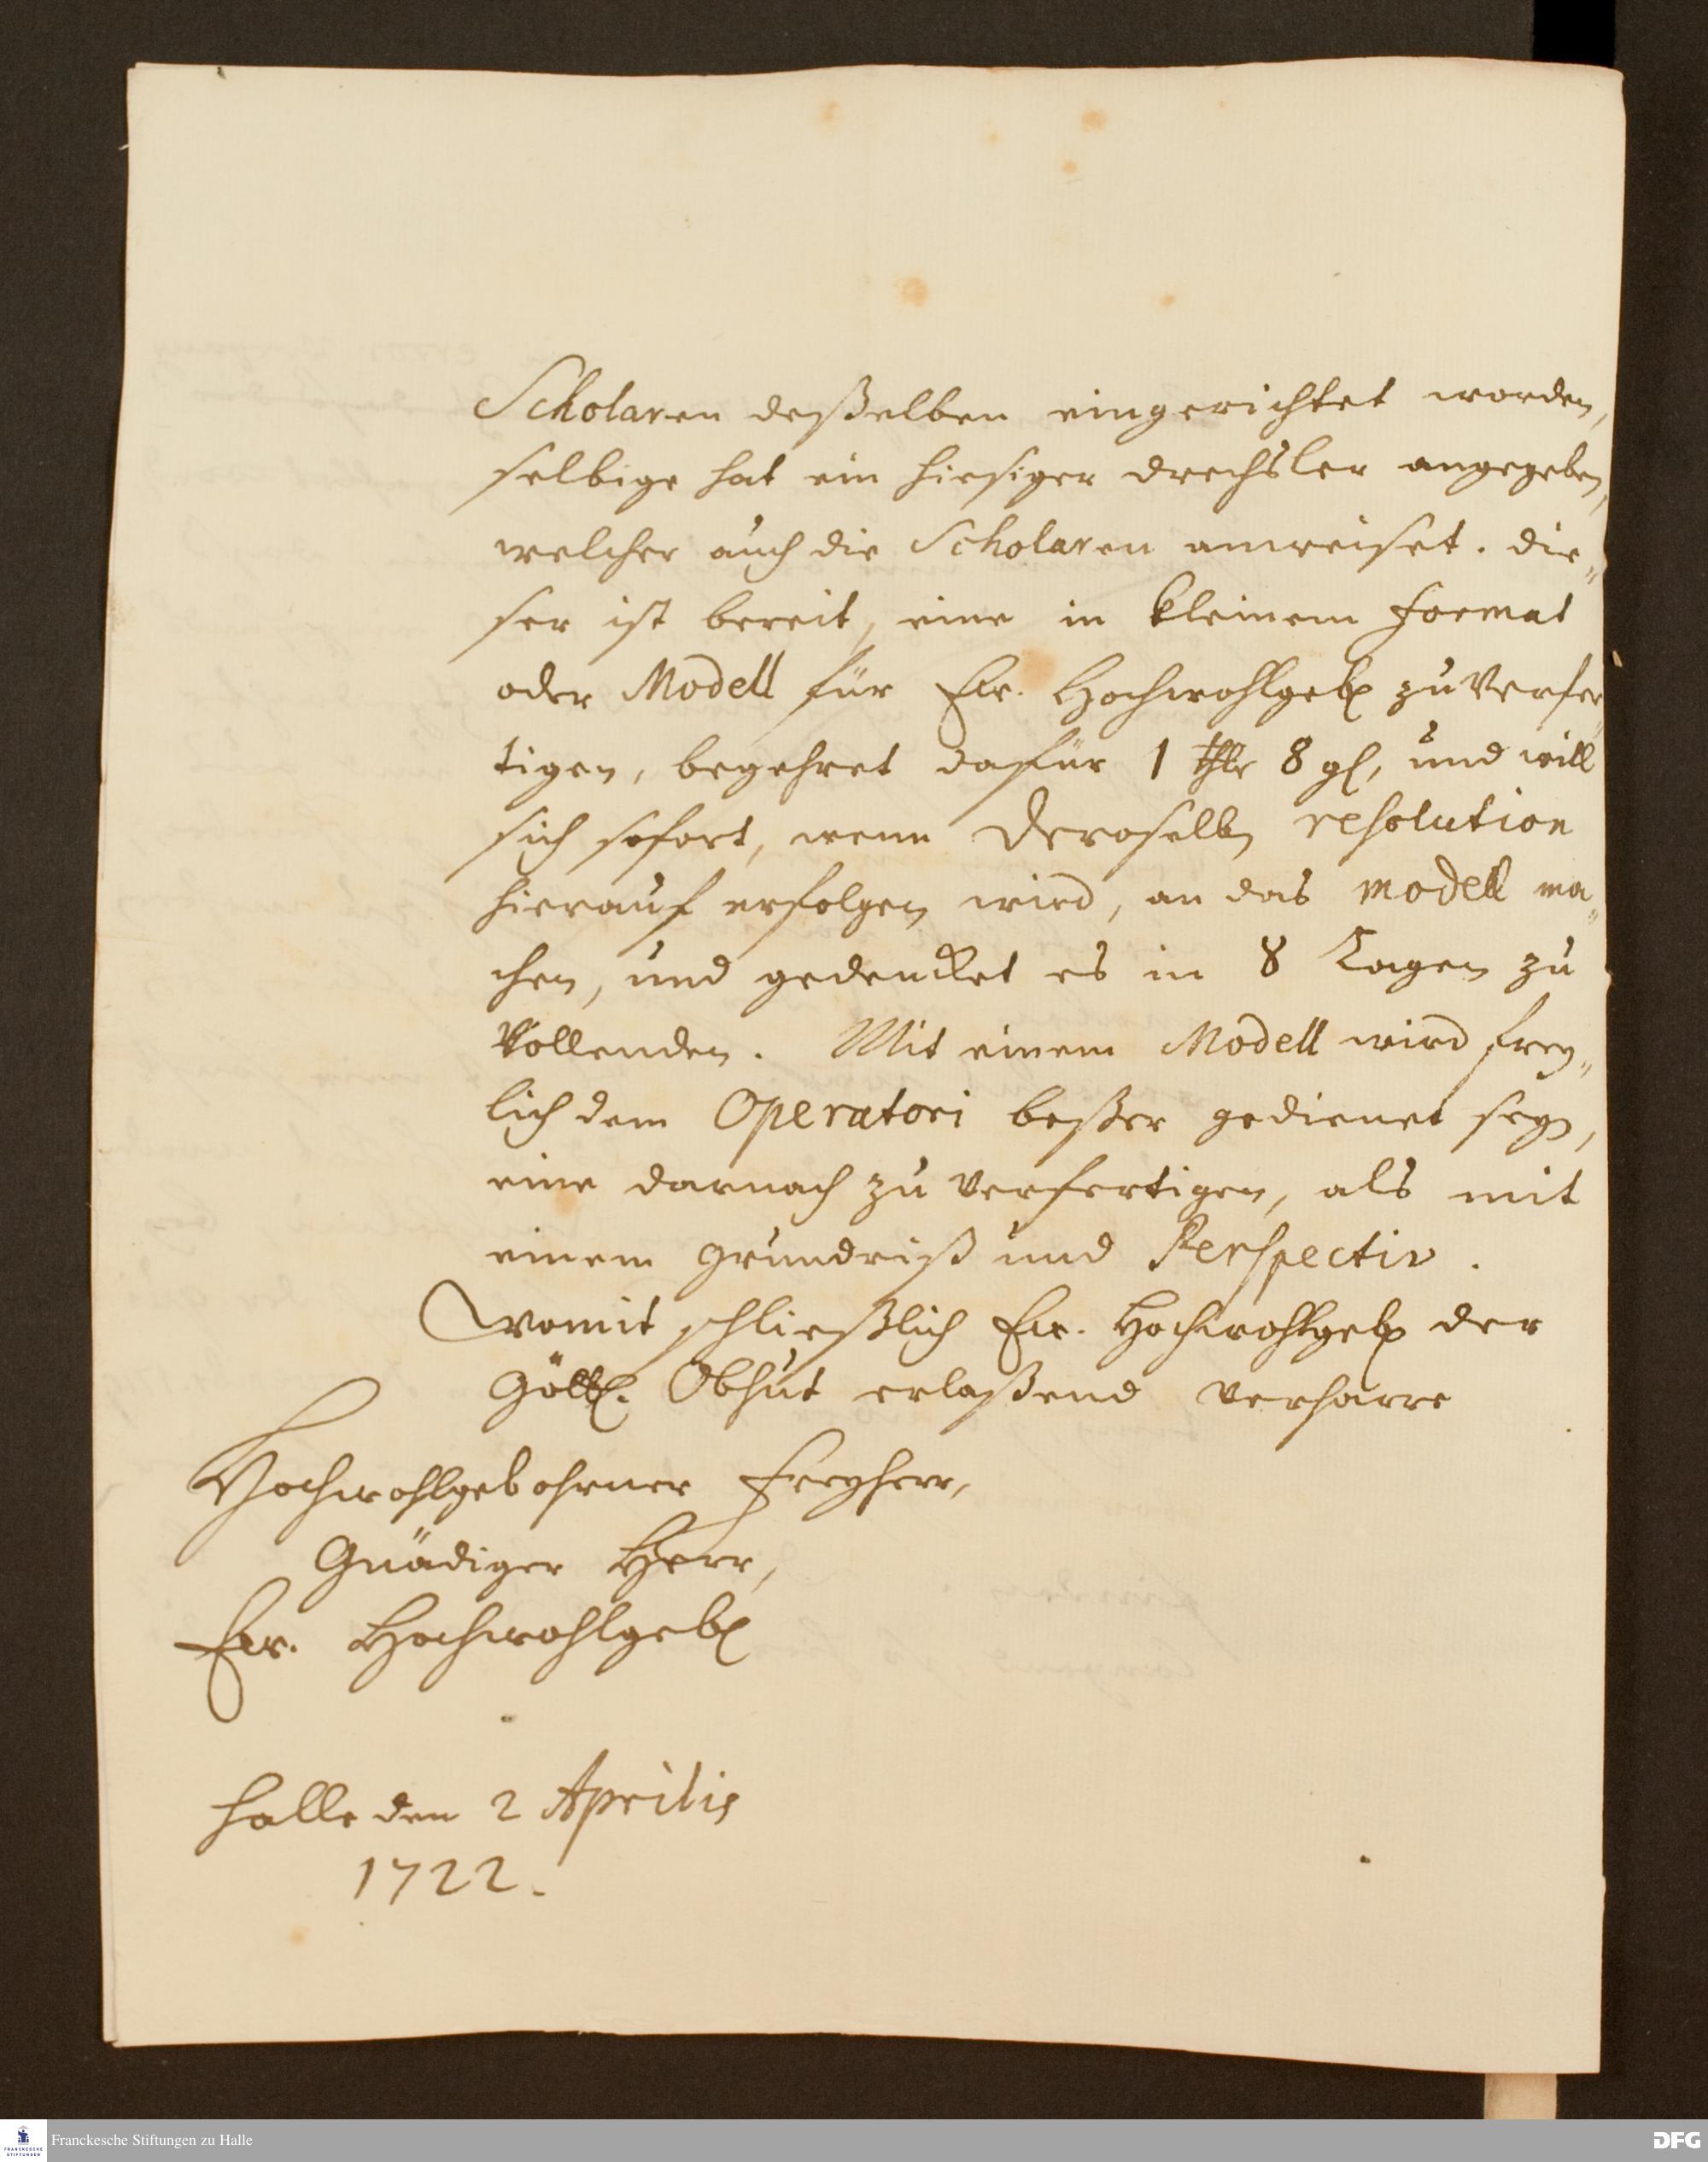 Scholaren deßelben eingerichtet worden,
selbige hat ein hiesiger drechsler angegeben,
welcher auch die Scholaren anweiset. die„
ser ist bereit, eine in kleinem format
oder Modell für Ew. Hochwohlgeb. zu verfer„
tigen, begehret dafür 1 thlr 8 gl, und will
sich sofort, wenn Deroselben resolution
hierauf erfolgen wird, an das modell ma„
chen, und gedencket es in 8 Tagen zu
Vollenden. Mit einem Modell wird frey„
lich dem Operatori beßer gedienet seyn,
eine darnach zu verfertigen, als mit
einem grundriß und Perspectiv.
Womit schließlich Ew. Hochwohlgeb. der
Göttl. Obhut erlaßend verharre
Hochwohlgebohrner Freyherr,
Gnädiger Herr,
Ew. Hochwohlgeb.
Halle den 2 Aprilis
1722.
FRANCKESCHE STIFTUNGEN
Franckesche Stiftungen zu Halle
DFG